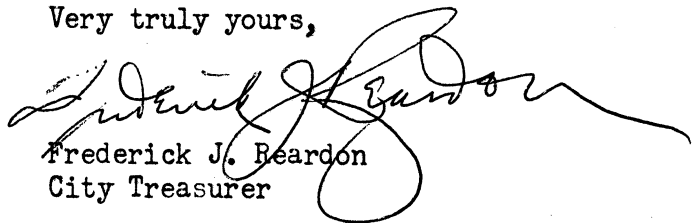 Very truly yours,
Frederick J. Reardon
Frederick J. Reardon
City Treasurer